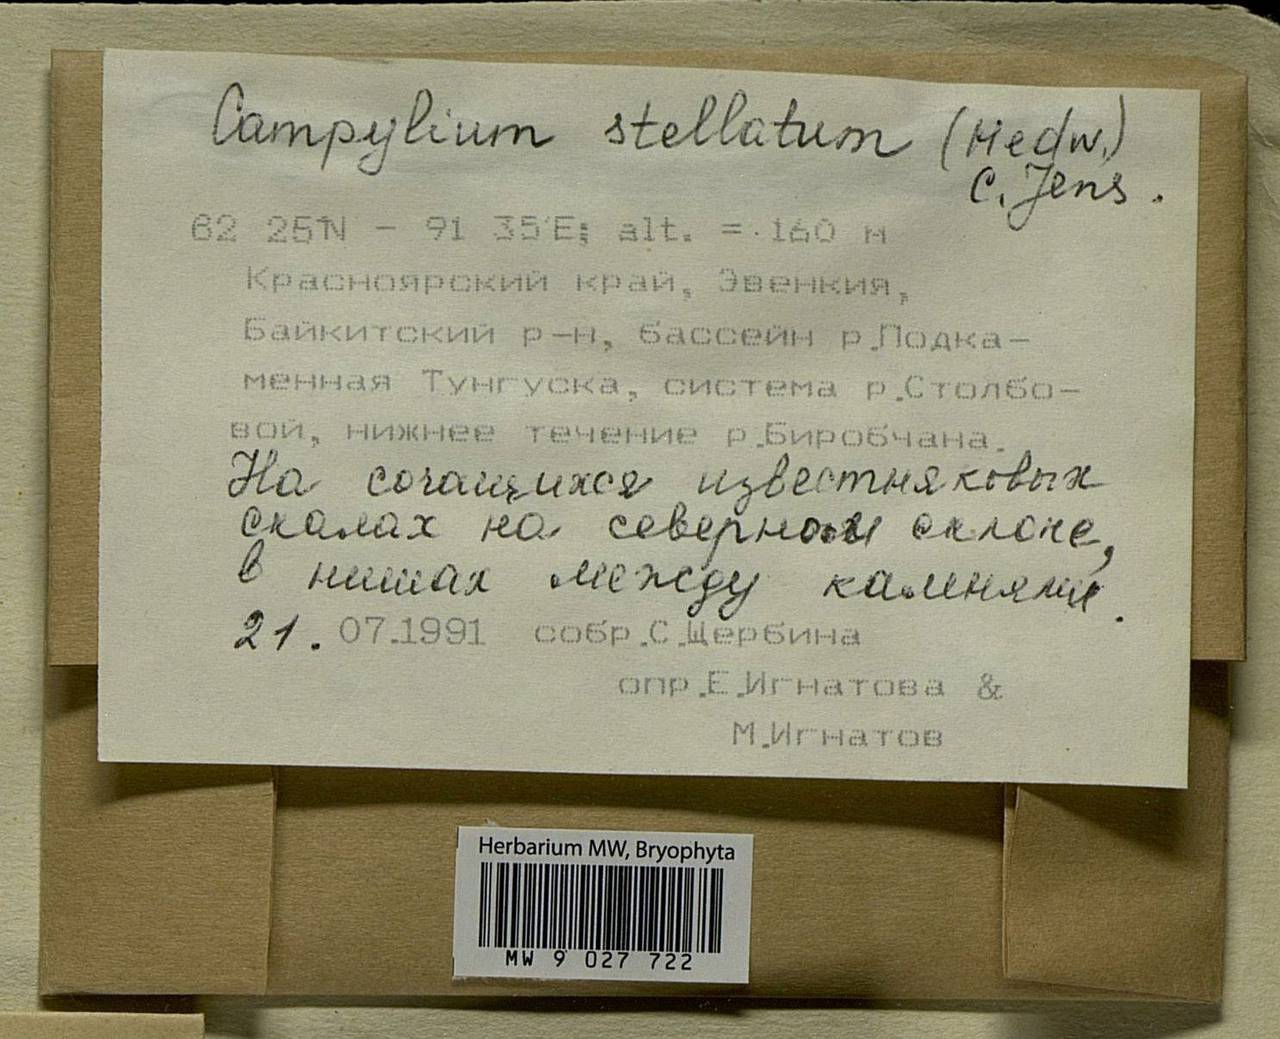 Campylium stellatum (Hedw.)
C. Jens.
62 25'N - 91 35'E; alt. = 160 м
Красноярский край, Эвенкия,
Байкитский р-н, бассейн р.Подка-
менная Тунгуска, система р.Столбо-
вой, нижнее течение р.Биробчана.
На сочащихся известняковых
скалах на северном склоне,
в нишах между камнями.
21.07.1991 собр.С.Щербина
опр.Е.Игнатова &
М.Игнатов
Herbarium MW, Bryophyta
MW 9 027 722